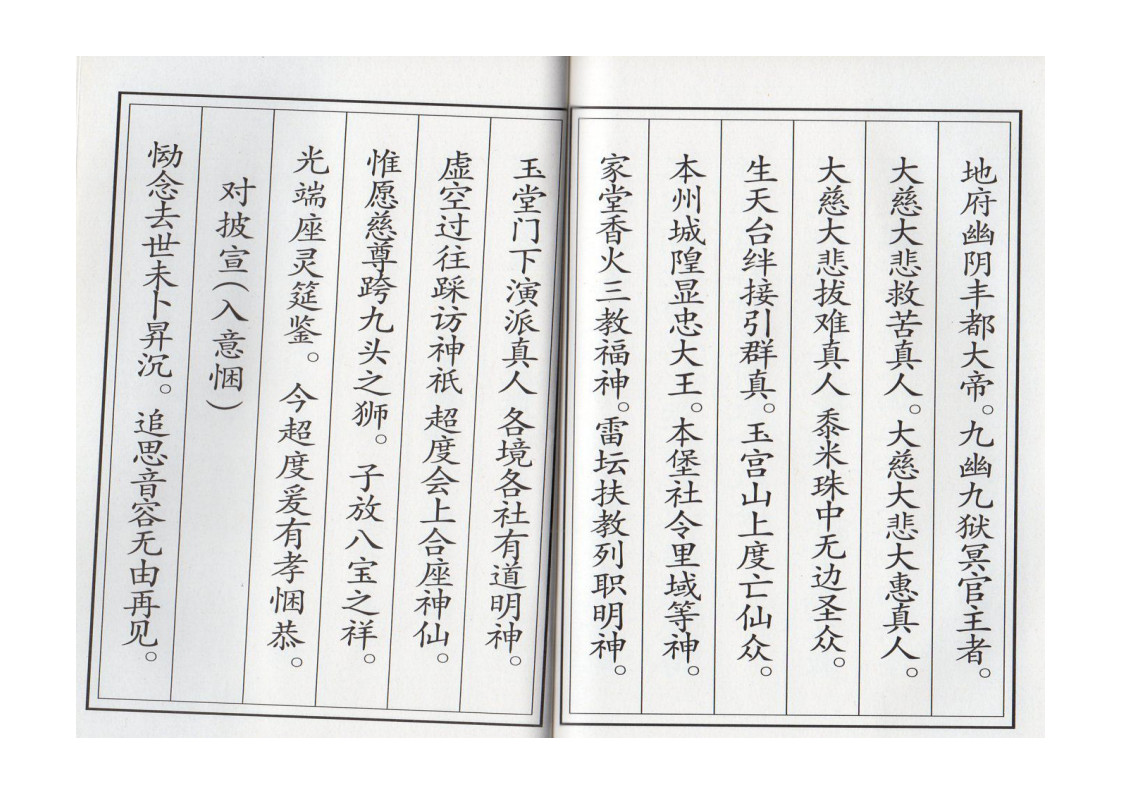 地府幽阴丰都大帝。九幽九狱冥官主者。
大慈大悲救苦真人。大慈大悲大惠真人。
大慈大悲拔难真人 黍米珠中无边圣众。
生天台绊接引群真。玉宫山上度亡仙众。
本州城隍显忠大王。本堡社令里域等神。
家堂香火三教福神。雷坛扶教列职明神。
玉堂门下演派真人 各境各社有道明神。
虚空过往踩访神祇 超度会上合座神仙。
惟愿慈尊跨九头之狮。子放八宝之祥。
光端座灵筵鉴。今超度爰有孝悃恭。
对披宣（入意悃）
恸念去世未卜昇沉。追思音容无由再见。